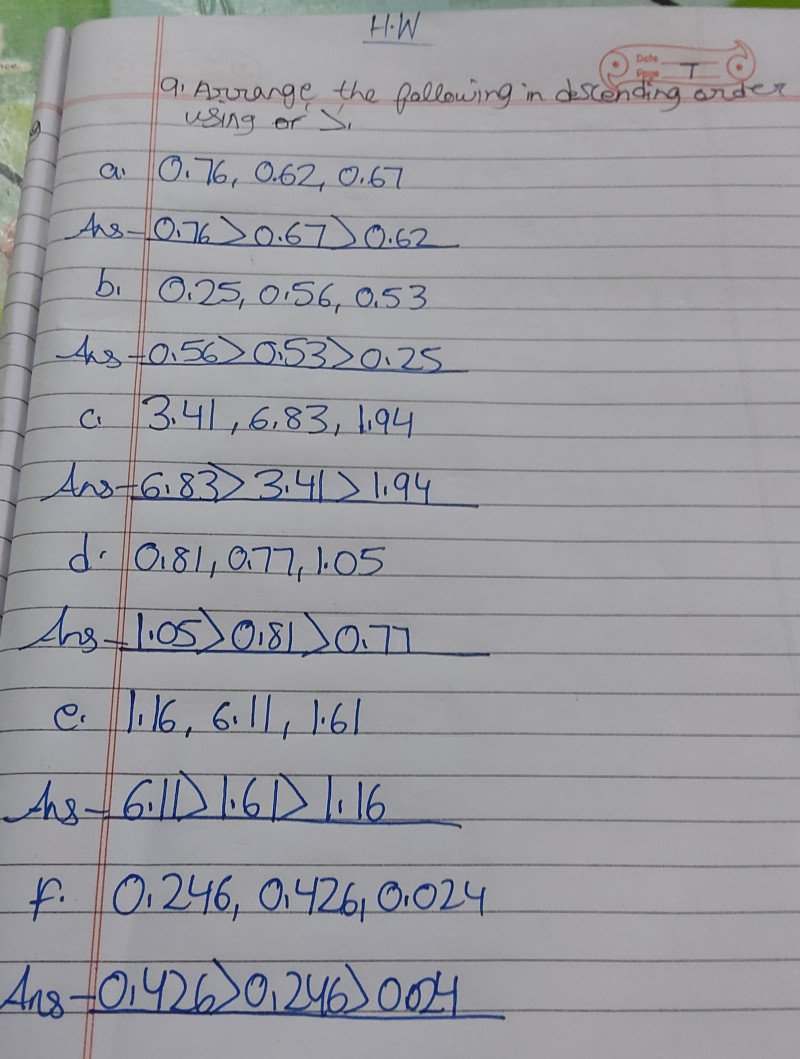 H.W
Date
Page T
9. Arrange the following in descending order
using or >.
a. 0.76, 0.62, 0.67
Ans- 0.76>0.67>0.62
b. 0.25, 0.56, 0.53
Ans- 0.56>0.53>0.25
c. 3.41, 6.83, 1.94
Ans- 6.83>3.41>1.94
d. 0.81, 0.77, 1.05
Ans- 1.05>0.81>0.77
e. 1.16, 6.11, 1.61
Ans- 6.11>1.61>1.16
f. 0.246, 0.426, 0.024
Ans- 0.426>0.246>0.024